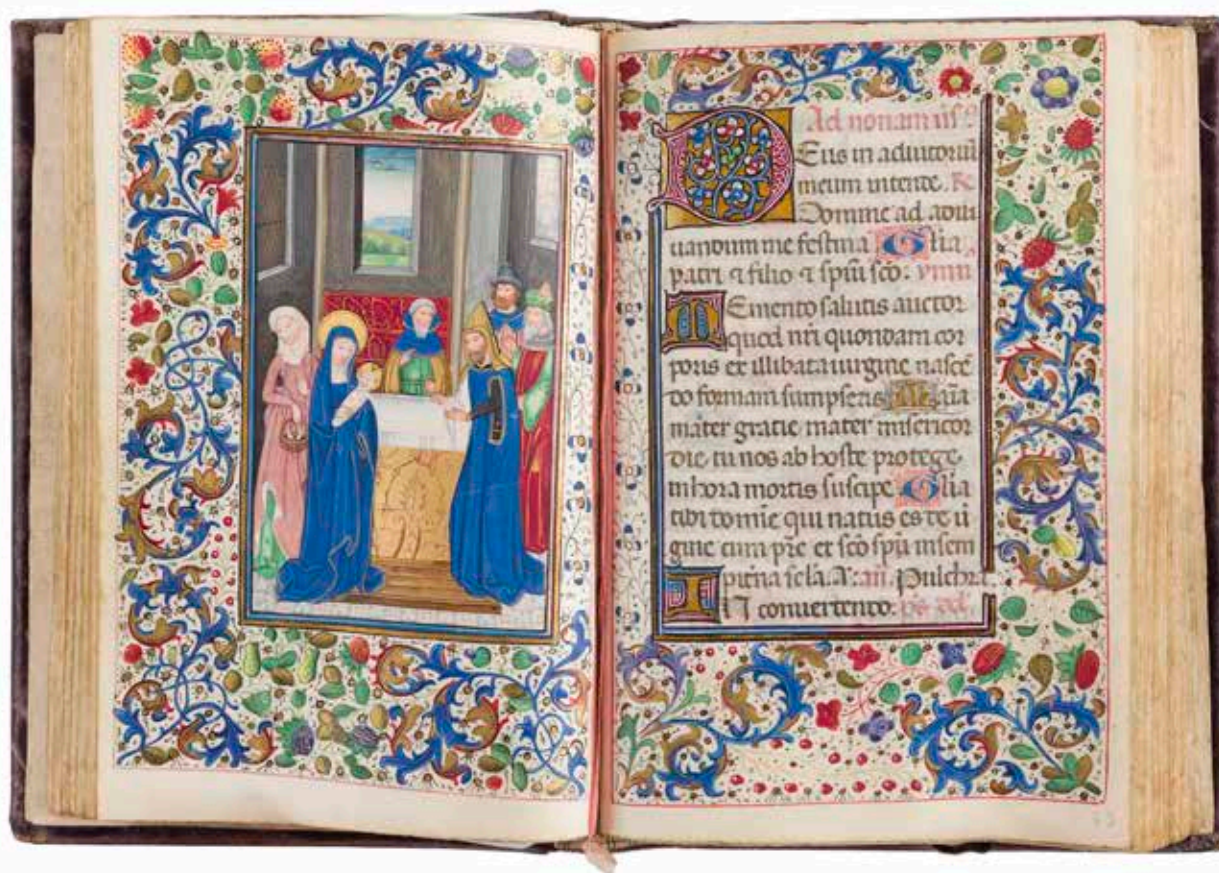 Ad nonam
Eus in adiutoriū
meum intende. R
Domine ad adiu
uandum me festina Glia
patri & filio & spiū sco: ymn
Memento salutis auctor
quod nri quondam cor
poris ex illibata uirgine nasce
do formam sumpseris Maria
mater gratie mater misericor
die tu nos ab hoste protege
in hora mortis suscipe Glia
tibi domine qui natus es de ui
gine cum pre et sco spū in sem
piterna secla. A: an. Pulchra
IN conuertendo: ps dd.